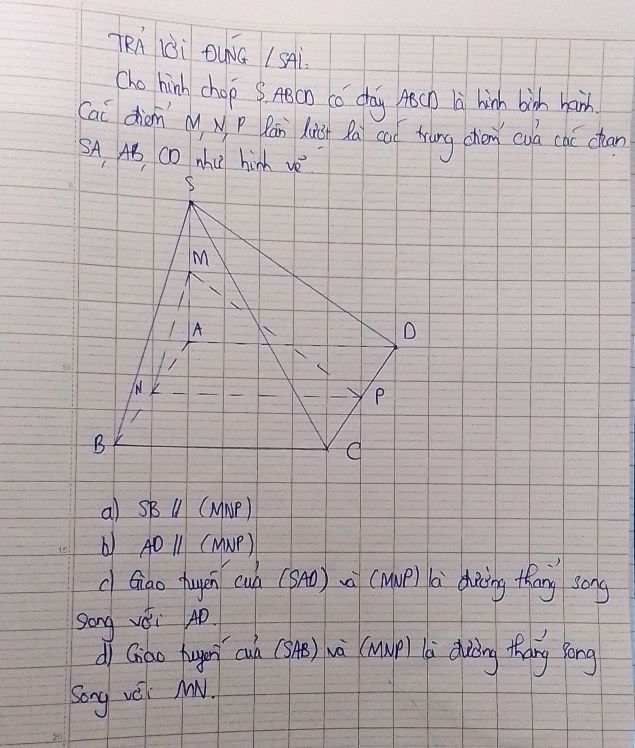 TRẢ lời ĐÚNG / SAI.
Cho hình chóp S.ABCD có đáy ABCD là hình bình hành.
Các điểm M, N, P lần lượt là các trung điểm của các đoạn
SA, AB, CD như hình vẽ.
S
M
A
D
N
P
B
C
a) SB // (MNP)
b) AD // (MNP)
c) Giao tuyến của (SAD) và (MNP) là đường thẳng song
song với AD.
d) Giao tuyến của (SAB) và (MNP) là đường thẳng song
song với MN.